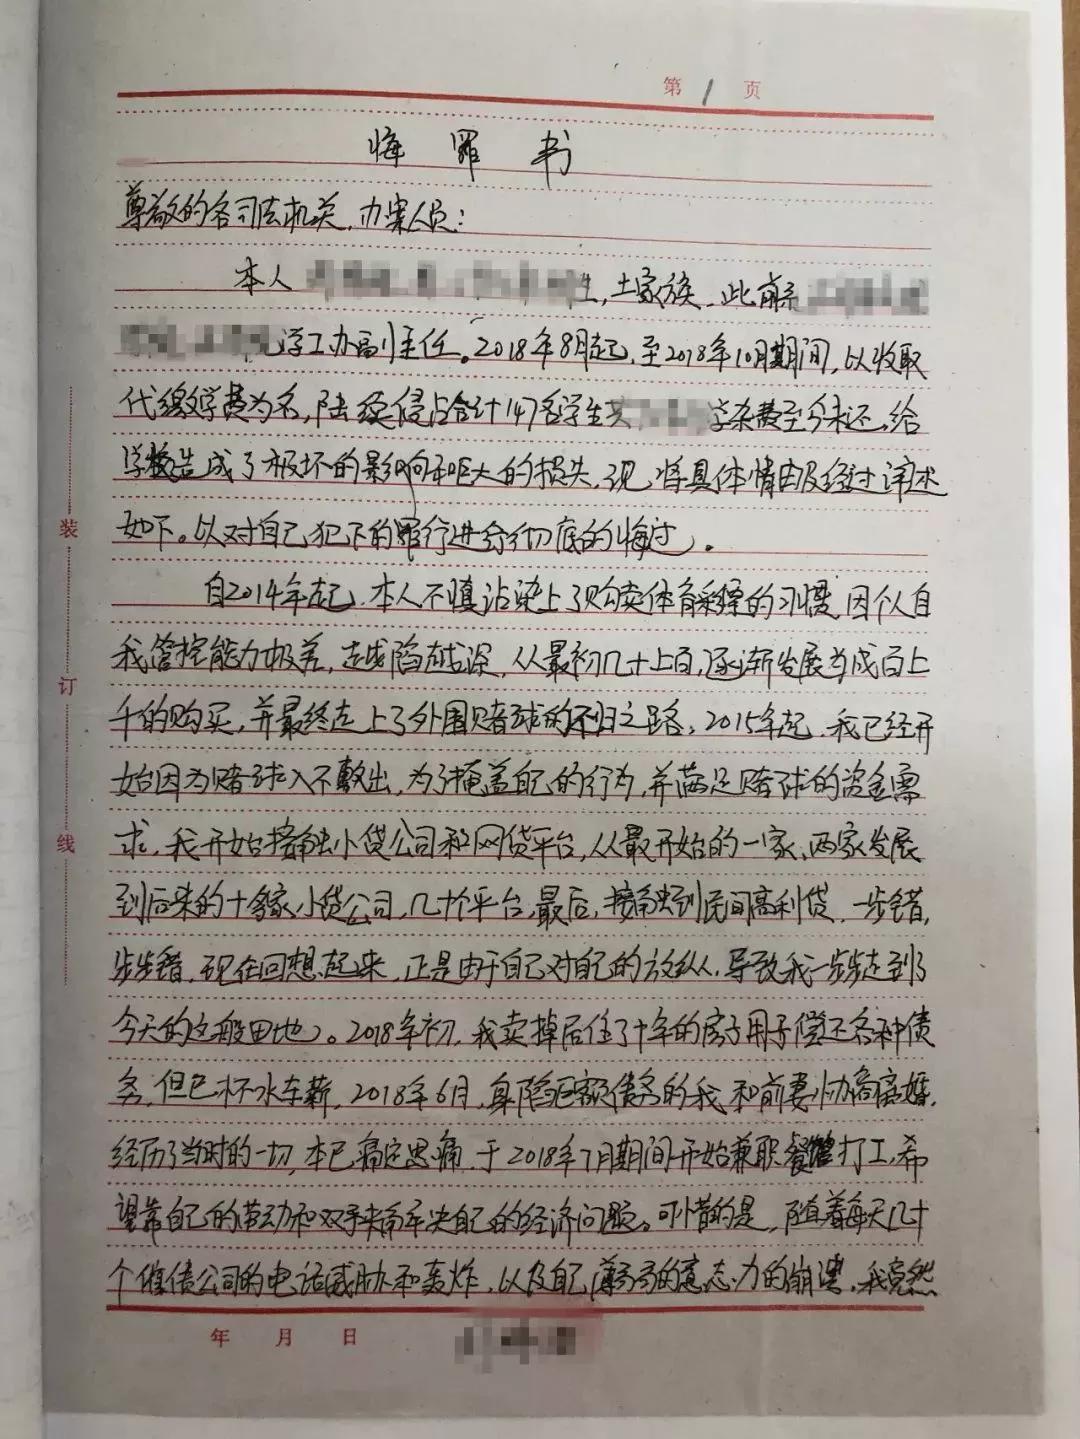 第 1 页
悔罪书
尊敬的各司法机关、办案人员:
本人 生,土家族,此前系
学工办副主任。2018年8月起,至2018年10月期间,以收取
代缴学费为名,陆续侵占合计147名学生共 学杂费至今未还,给
学校造成了极坏的影响和巨大的损失,现将具体情由及经过详述
如下。以对自己犯下的罪行进行彻底的悔过。
自2014年起,本人不慎沾染上了购卖体育彩票的习惯,因个人自
我管控能力极差,越陷越深,从最初几十上百,逐渐发展为成百上
千的购买,并最终走上了外围赌球的不归之路,2015年起,我已经开
始因为赌球入不敷出,为了掩盖自己的行为,并满足赌球的资金需
求,我开始接触小贷公司和网贷平台,从最开始的一家、两家发展
到后来的十多家小贷公司,几十个平台,最后,接触到民间高利贷,一步错,
步步错,现在回想起来,正是由于自己对自己的放纵,导致我一步步走到了
今天的这般田地。2018年初,我卖掉居住了十年的房子用于偿还各种债
务,但已杯水车薪,2018年6月,身陷巨额债务的我和前妻协商离婚,
经历了当时的一切,本已痛定思痛,于2018年7月期间开始兼职餐馆打工,希
望靠自己的劳动和双手来解决自己的经济问题。可惜的是,随着每天几十
个催债公司的电话威胁和轰炸,以及自己薄弱的意志力的崩溃,我竟然
年 月 日
装
订
线